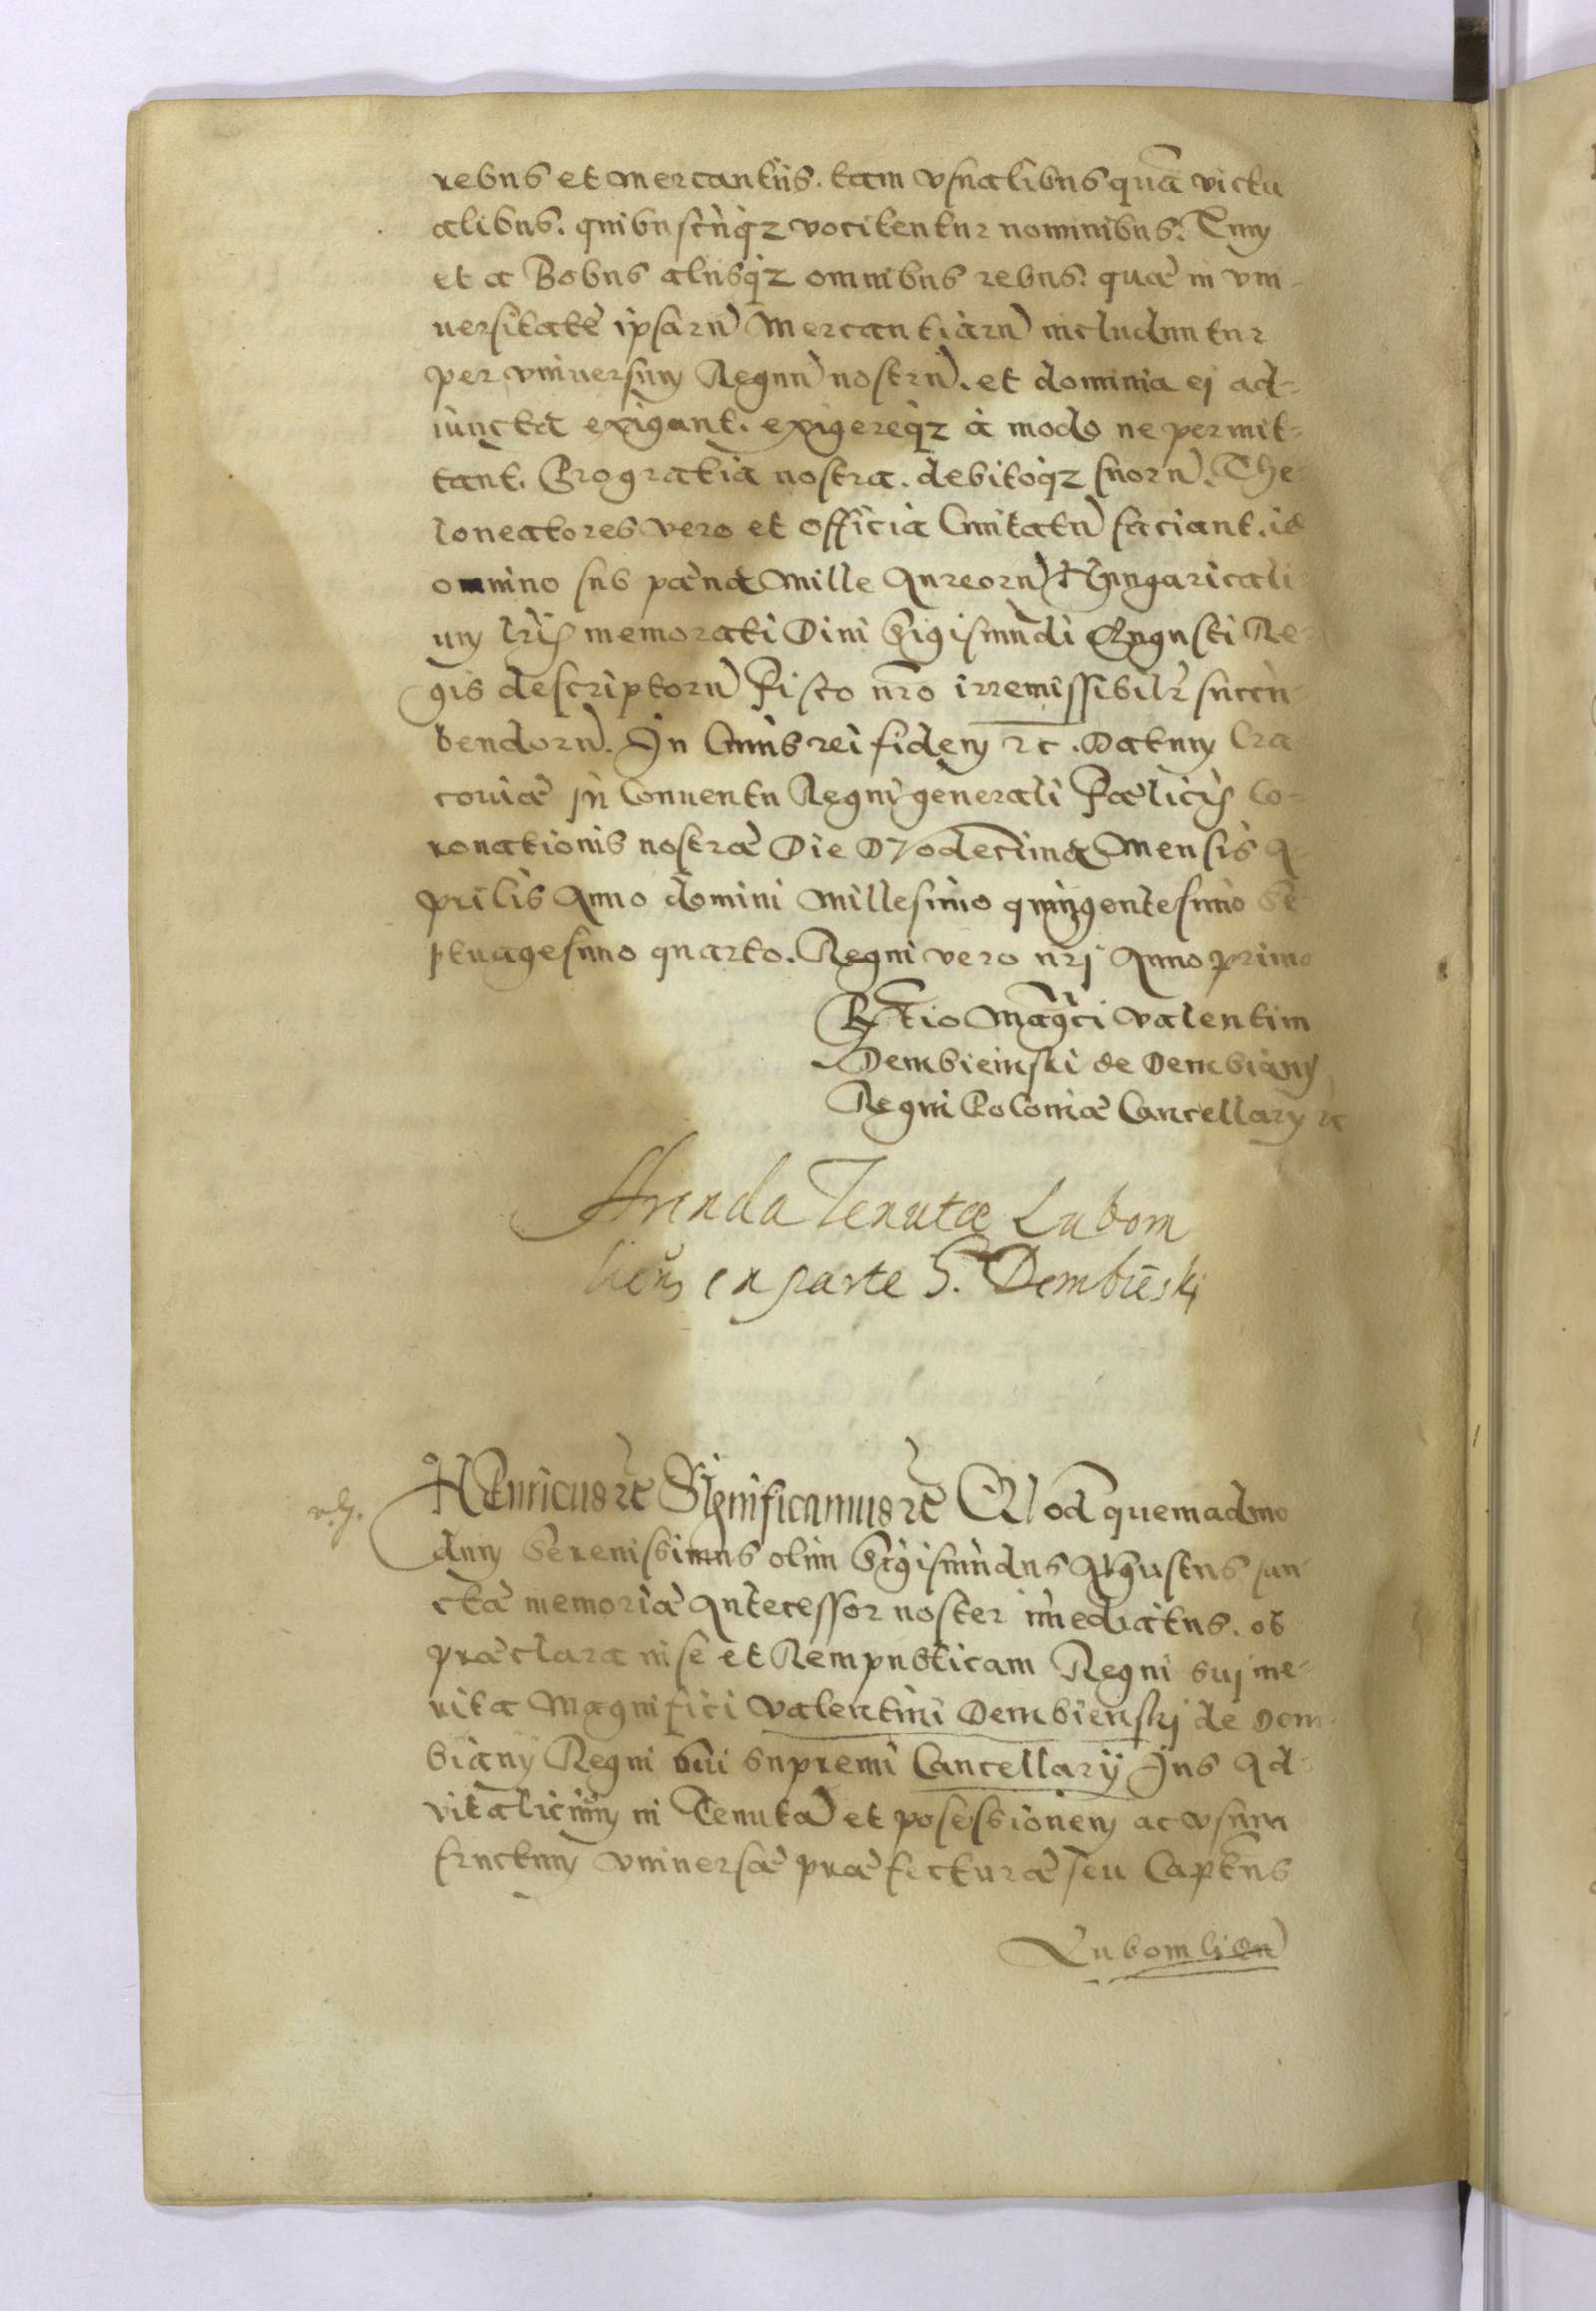 rebus et mercantijs. tam vsualibus quā victu
alibus. quibuscūqz vocitentur nominibus. Tum
et a Bobus alijsqz omnibus rebus: quæ in vni-
uersitate ipsarū Mercantiarū includuntur
per vniuersum Regnū nostrū. et dominia ej ad-
iuncta exigant. exigereqz à modo ne permit-
tant. Pro gratia nostra. debitoqz suorū. The
loneatores vero et officia Ciuitatū faciant. id
omnino sub pæna Mille Aureorū Hungaricali
um lr̃is memorati Diui Sigismūdi Augusti Re-
gis descriptorū Fisco nr̃o irremissibilr̃ succū-
bendorū. In Cuius rei fidem rc. Datum Cra
couiæ in Conuentu Regni generali Fælicis Co-
ronationis nostræ Die Dvodecima Mensis A-
prilis Anno domini Millesimo quingentesimo Se
ptuagesimo quarto. Regni vero nr̃j Anno primo
Rtio Mag̃ci Valentini
Dembieinski de Dembiany
Regni Poloniæ Cancellarÿ rc
Arenda Tenutæ Lubom
lien̄ ex parte G. Dembiēskj
HEnricus rc Significamus rc QVod quemadmo
dum Serenissimus olim Sigismūdus AVgustus san
ctæ memoriæ Antecessor noster im̄ediatus. ob
præclara in se et Rempublicam Regni suj me-
rita Magnifici Valentini Dembienskj de Dem-
biany Regni sui supremi Cancellarÿ Ius Ad-
vitalicium in Tenutā et posessionem ac vsum
fructum vniuersæ præfecturæ seu Captus
Lubomlien̄